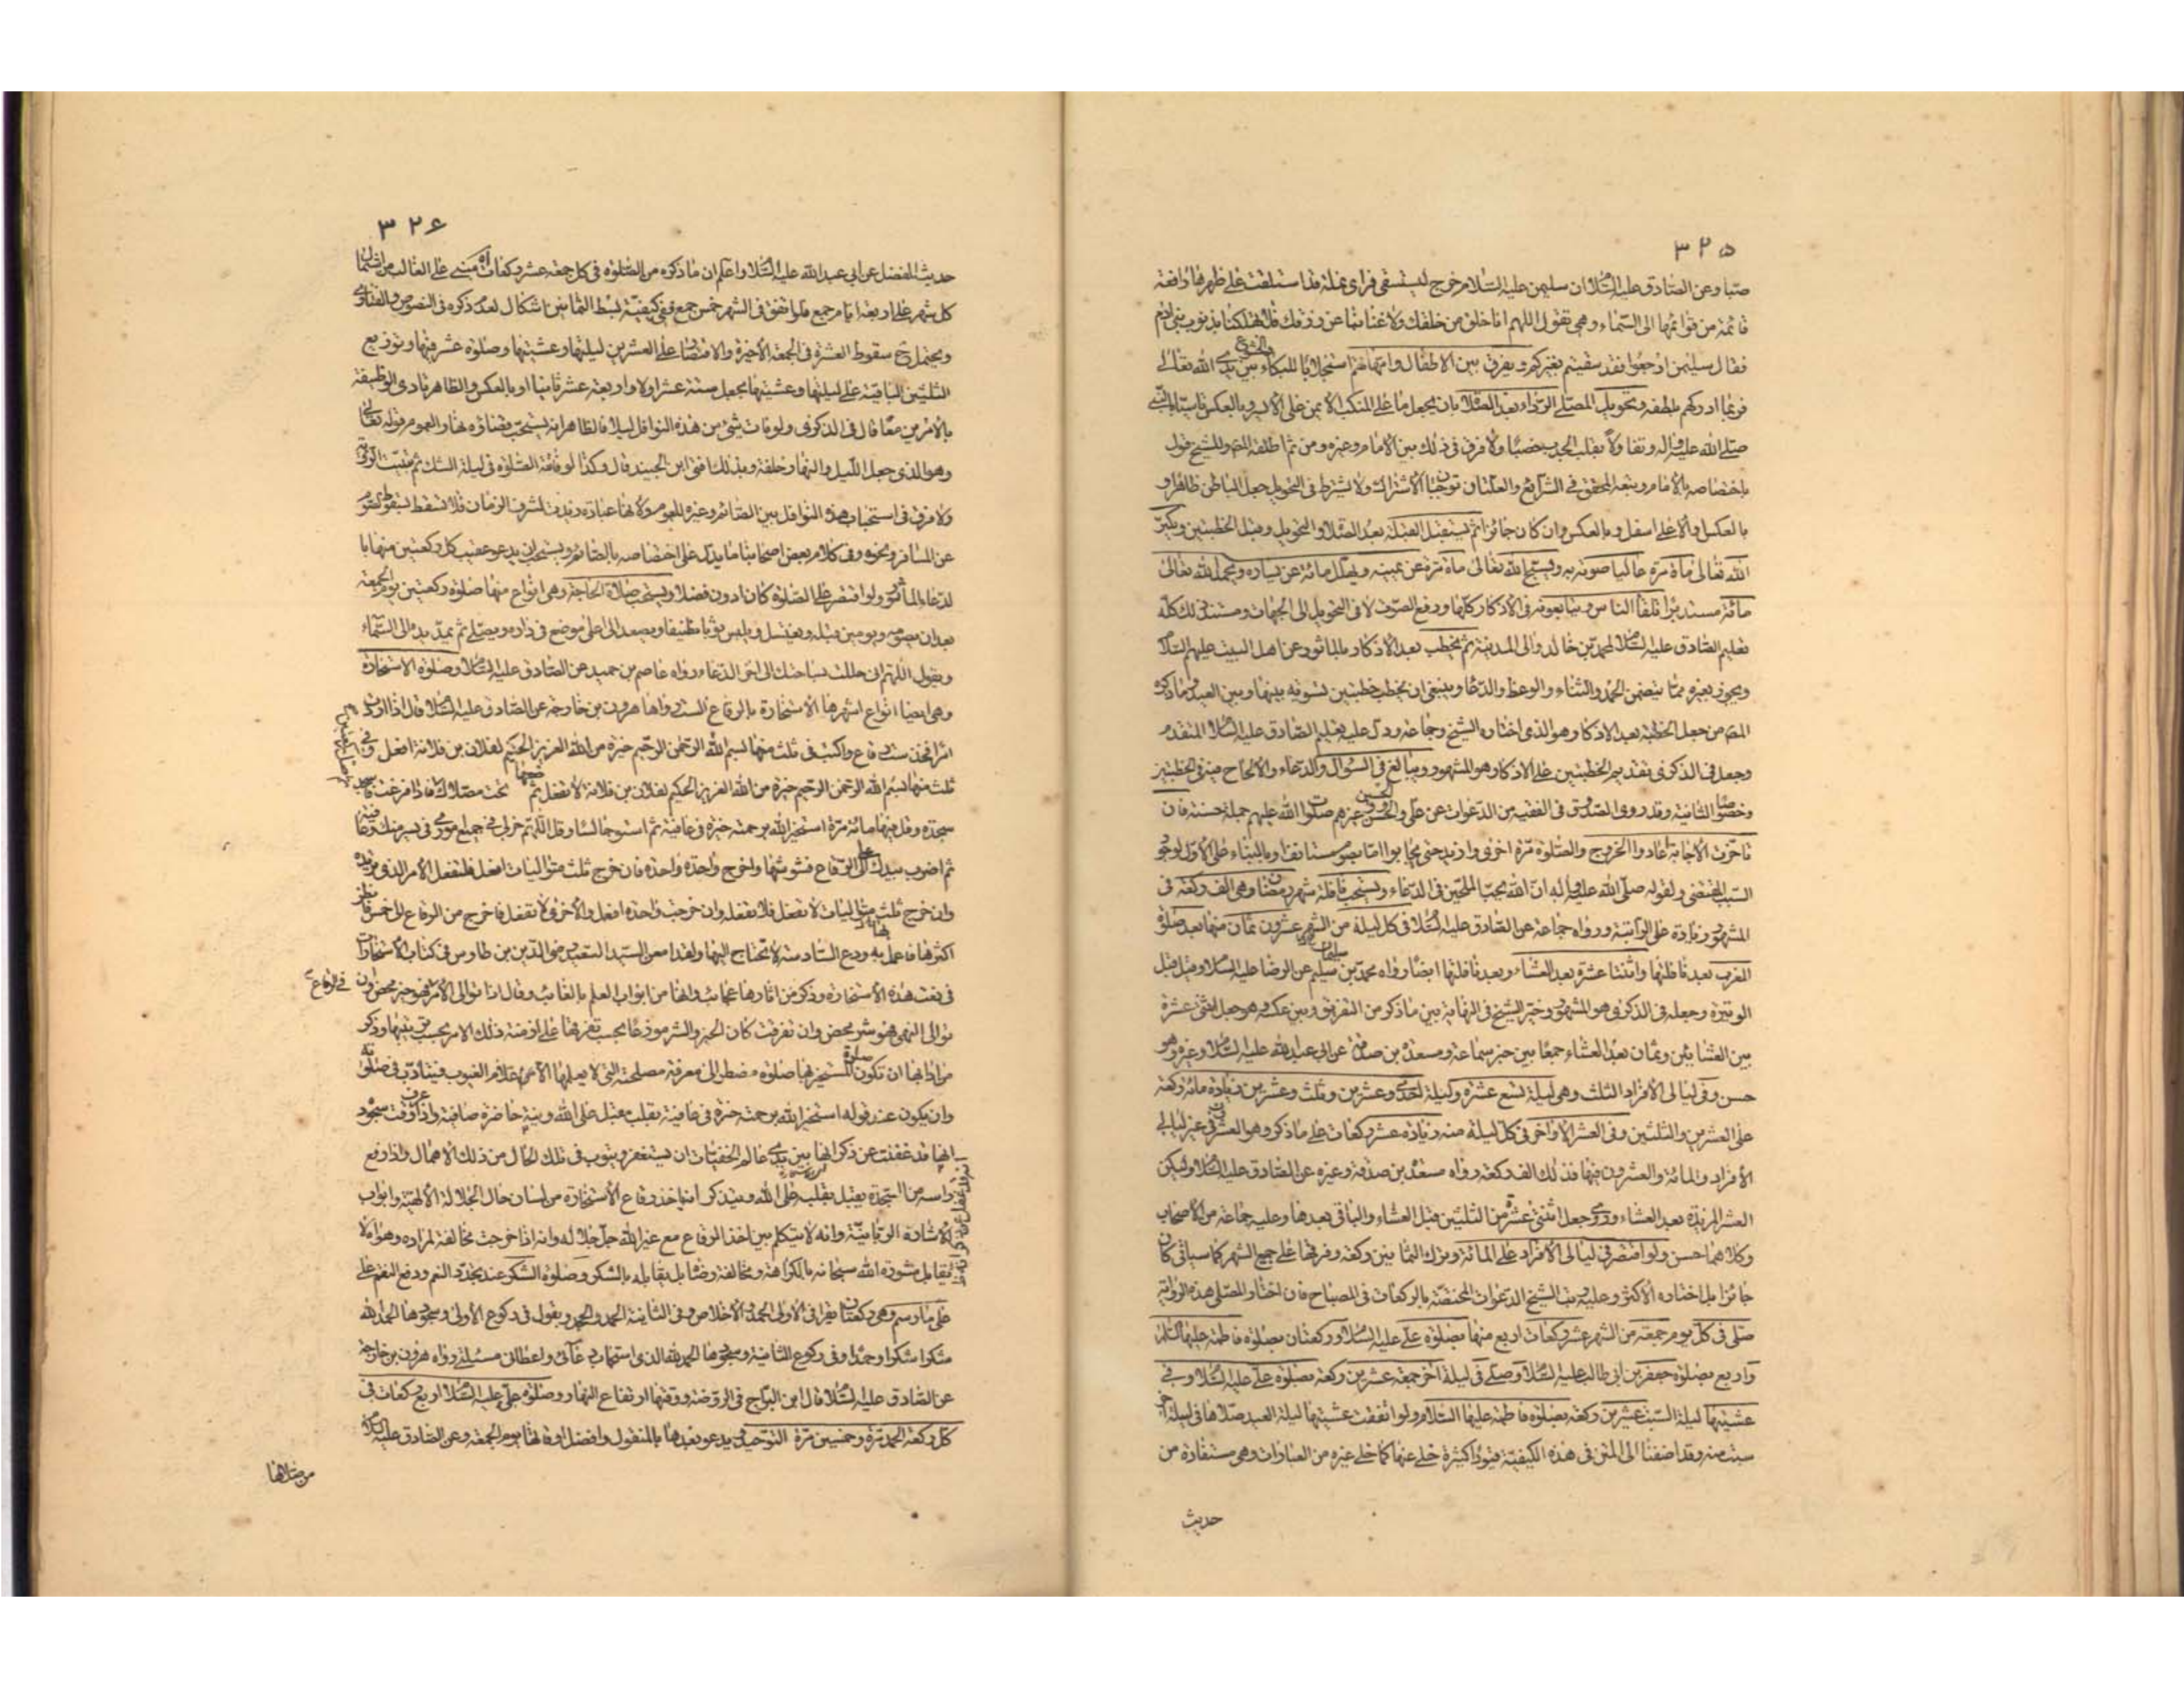 ٣٢٥
صبا وعن الصادق عليه السلام ان سليمن عليه السلام خرج ليستسقى فراى نملة قد استلقت على ظهرها رافعة
قائمة من قوائمها الى السماء وهى تقول اللهم انا خلق من خلقك ولا غنا بنا عن رزقك فلا تهلكنا بذنوب بنى ادم
فقال سليمن ارجعوا فقد سقيتم بغيركم ثم يفرق بين الاطفال وامهاتهم استجلابا للبكاء والخشوع بين يدى الله تعالى
فربما ادركهم بلطفه وتحويل المصلى الرداء بعد الصلاة بان يجعل ما على المنكب الايمن على الايسر وبالعكس تاسيا بالنبى
صلى الله عليه واله وتفاولا بقلب الجدب خصبا ولا فرق فى ذلك بين الامام وغيره ومن ثم اطلقه المص وللشيخ قول
باختصاصه بالامام وتبعه المحقق فى الشرايع والعلتان توجبان الاشتراك ولا يشترط فى التحويل جعل الباطن ظاهرا و
بالعكس والاعلى اسفل وبالعكس وان كان جائزا ثم يستقبل القبلة بعد الصلاة والتحويل وقبل الخطبتين ويكبر
الله تعالى مأة مرة عاليا صوته به ويسبح الله تعالى مأة مرة عن يمينه ويهلل مائة عن يساره ويحمد الله تعالى
مائة مستدبرا تلقاء الناس ويتابعونه فى الاذكار كلها ورفع الصوت لا فى التحويل الى الجهات ومستند ذلك كله
تعليم الصادق عليه السلام لمحمد بن خالد والى المدينة ثم يخطب بعد الاذكار بالماثور عن اهل البيت عليهم السلام
ويجوز بغيره مما يتضمن الحمد والثناء والوعظ والدعا وينبغى ان يخطب خطبتين تسوية بينها وبين العيد وما ذكره
المص من جعل الخطبة بعد الاذكار وهو الذى اختاره الشيخ وجماعة ودل عليه تعليم الصادق عليه السلام المتقدم
وجعل فى الذكرى تقديم الخطبتين على الاذكار وهو المشهور ويبالغ فى السؤال والدعاء والالحاح فيه فى الخطبتين
وخصوصا الثانية وقد روى الصدوق فى الفقيه من الدعوات عن على والحسن والحسين وغيرهم صلوات الله عليهم جملة حسنة فان
تاخرت الاجابة عادوا الخروج والصلوة مرة اخرى وازيد حتى يجابوا اما بصوم مستانف او بالبناء على الاول لوجو
السبب المقتضى ولقوله صلى الله عليه واله ان الله يحب الملحين فى الدعاء ويستحب نافلة شهر رمضان وهى الف ركعة فى
المشهور زيادة على الراتبة ورواه جماعة عن الصادق عليه السلام فى كل ليلة من الشهر عشرون ثمان منها بعد صلوة
المغرب بعد نافلتها واثنتا عشرة بعد العشاء وبعد نافلتها ايضا رواه محمد بن سليم عن الرضا عليه السلام وقبل قبل
الوتيرة وجعله فى الذكرى هو المشهور وخير الشيخ فى النهاية بين ما ذكر من التفريق وبين عكسه وهو جعل اثنتى عشرة
بين العشائين وثمان بعد العشاء جمعا بين خبر سماعة ومسعدة بن صدقة عن ابى عبد الله عليه السلام وغيره وهو
حسن وفى ليالى الافراد الثلث وهى ليلة تسع عشرة وليلة احدى وعشرين وثلث وعشرين زيادة مائة ركعة
على العشرين والثلثين وفى العشر الاواخر فى كل ليلة منه زيادة عشر ركعات على ما ذكر وهو العشرون فى غير ليالى
الافراد والمائة والعشرون فيها فذلك الف ركعة رواه مسعدة بن صدقة وغيره عن الصادق عليه السلام وليكن
العشر المزيدة بعد العشاء وروى جعل اثنتى عشرة من الثلثين قبل العشاء والباقى بعدها وعليه جماعة من الاصحاب
وكلاهما حسن ولو اقتصر فى ليالى الافراد على المائة وترك الثمانين ركعة وفرقها على جميع الشهر كما سياتى كان
جائزا بل اختاره الاكثر وعليه رتب الشيخ الدعوات المختصة بالركعات فى المصباح فان اختار المصلى هذه الرواية
صلى فى كل يوم جمعة من الشهر عشر ركعات اربع منها بصلوة على عليه السلام وركعتان بصلوة فاطمة عليها السلام
واربع بصلوة جعفر بن ابى طالب عليه السلام وصلى فى ليلة اخر جمعة عشرين ركعة بصلوة على عليه السلام وفى
عشيتها ليلة السبت عشرين ركعة بصلوة فاطمة عليها السلام ولو اتفقت عشيتها ليلة العيد صلاها فى ليلة اخر
سبت منه وقد اضفنا الى المتن فى هذه الكيفية قيودا كثيرة خلى عنها كما خلى غيره من العبارات وهى مستفادة من
حديث
٣٢٦
حديث المفضل عن ابى عبد الله عليه السلام واعلم ان ما ذكره من الصلوة فى كل جمعة عشر ركعات مبنى على الغالب من اشتمال
كل شهر على اربعة ايام جمع فلو اتفق فى الشهر خمس جمع ففى كيفية بسط الثمانين اشكال لعدم ذكره فى النصوص والفتاوى
ويحتمل ح سقوط العشرة فى الجمعة الاخيرة والاقتصار على العشرين ليلتها وعشيتها وصلوة عشر فيها وتوزيع
الثلثين الباقية على ليلتها وعشيتها بجعل ستة عشر اولا واربعة عشر ثانيا او بالعكس والظاهر تادى الوظيفة
بالامرين معا قال فى الذكرى ولو فات شئ من هذه النوافل ليلا فالظاهر انه يستحب قضاؤه نهارا لعموم قوله تعالى
وهو الذى جعل الليل والنهار خلفة وبذلك افتى ابن الجنيد قال وكذا لو فاتته الصلوة فى ليلة الشك ثم تثبت الرؤية
ولا فرق فى استحباب هذه النوافل بين الصائم وغيره للعموم ولانها عبادة زيدت لشرف الزمان فلا تسقط بسقوط الصوم
عن المسافر ونحوه وفى كلام بعض اصحابنا ما يدل على اختصاصه بالصائم ويستحب ان يدعو عقيب كل ركعتين منها با
لدعاء الماثور ولو اقتصر على الصلوة كان ادون فضلا ويستحب صلاة الحاجة وهى انواع منها صلوة ركعتين يوم الجمعة
بعد ان يصومه ويومين قبله ويغتسل ويلبس ثوبا نظيفا ويصعد الى اعلى موضع فى داره ويصلى ثم يمد يده الى السماء
ويقول اللهم انى حللت بساحتك الى اخر الدعاء رواه عاصم بن حميد عن الصادق عليه السلام وصلوة الاستخارة
وهى ايضا انواع اشهرها الاستخارة بالرقاع الست رواها هرون بن خارجة عن الصادق عليه السلام قال اذا اردت
امرا فخذ ست رقاع واكتب فى ثلث منها بسم الله الرحمن الرحيم خيرة من الله العزيز الحكيم لفلان بن فلانة افعل وفى
ثلث منها بسم الله الرحمن الرحيم خيرة من الله العزيز الحكيم لفلان بن فلانة لا تفعل ثم ضعها تحت مصلاك فاذا فرغت فاسجد
سجدة وقل فيها مائة مرة استخير الله برحمته خيرة فى عافية ثم استو جالسا وقل اللهم خر لى فى جميع امورى فى يسر منك وعافية
ثم اضرب بيدك على الرقاع فشوشها واخرج واحدة واحدة فان خرج ثلث متواليات افعل فلتفعل الامر الذى تريده
وان خرج ثلث متواليات لا تفعل فلا تفعله وان خرجت واحدة افعل والاخرى لا تفعل فاخرج من الرقاع الى خمس فانظر
اكثرها فاعمل به ودع السادسة لا تحتاج اليها ولقد امعن السيد السعيد رضى الدين بن طاوس فى كتاب الاستخارات
فى نعت هذه الاستخارة وذكر من اثارها عجائب وانها من ابواب العلم بالغائب وقال اذا توالى الامر فهو خير محض وان
فى الرقاع
توالى النهى فهو شر محض وان تفرقت كان الخير والشر موزعا بحسب تفرقها على ازمنة ذلك الامر بحسب ترتيبها وذكر
من ادابها ان تكون المستخير فيها صلوة مضطر الى معرفة مصلحته التى لا يعلمها الا علام الغيوب فيتادب فى صلوته
وان يكون عند قوله استخير الله برحمته خيرة فى عافية بقلب مقبل على الله ونية حاضرة صافية واذا عرف وقت سجود
انه قد غفلت عن ذكر انها بين يدى عالم الخفيات ان يستغفر ويتوب فى تلك الحال من ذلك الاهمال واذا رفع
راسه من السجدة يقبل بقلبه على الله ويتذكر انه ياخذ رقاع الاستخارة من لسان حال الجلالة الالهية وابواب
الاشارة الربانية وانه لا يتكلم بين اخذ الرقاع مع غير الله جل جلاله وانه اذا خرجت مخالفة لمراده وهواه لا
يقابل مشورة الله سبحانه بالكراهة ومخالفة رضاه بل يقابله بالشكر وصلوة الشكر عند تجدد النعم ودفع النقم على
على ما رسم وهى ركعتان يقرا فى الاولى الحمد والاخلاص وفى الثانية الحمد والجحد ويقول فى ركوع الاولى وسجودها الحمد لله
شكرا شكرا وحمدا وفى ركوع الثانية وسجودها الحمد لله الذى استجاب دعائى واعطانى مسئلتى رواه هرون بن خارجة
عن الصادق عليه السلام قال ابن البراج فى الروضة ووقتها ارتفاع النهار وصلوة على عليه السلام اربع ركعات فى
كل ركعة الحمد مرة وخمسين مرة التوحيد ويدعو بعدها بالمنقول وافضل اوقاتها يوم الجمعة وعن الصادق عليه السلام
من صلاها